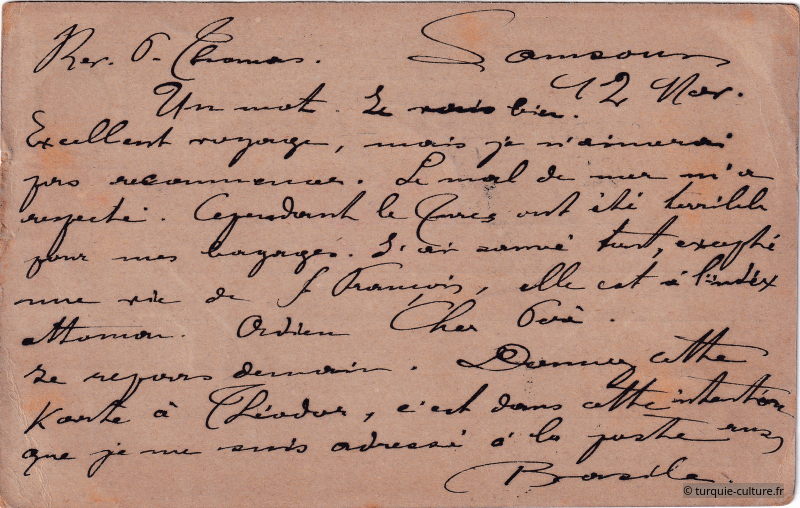 Rev. P. Thomas. Samsoun
12 Nov.
Un mot. Je vais bien.
Excellent voyage, mais je n'aimerai
pas recommencer. Le mal de mer m'a
respecté. Cependant le Turcs ont été terrible
pour mes bagages. J'ai sauvé tout, excepté
une vie de S François, elle est à l'index
ottoman. Adieu Cher Père.
Je repars demain. Donnez cette
Karte à Théodor, c'est dans cette intention
que je me suis adressé à la poste
Basile.
© turquie-culture.fr